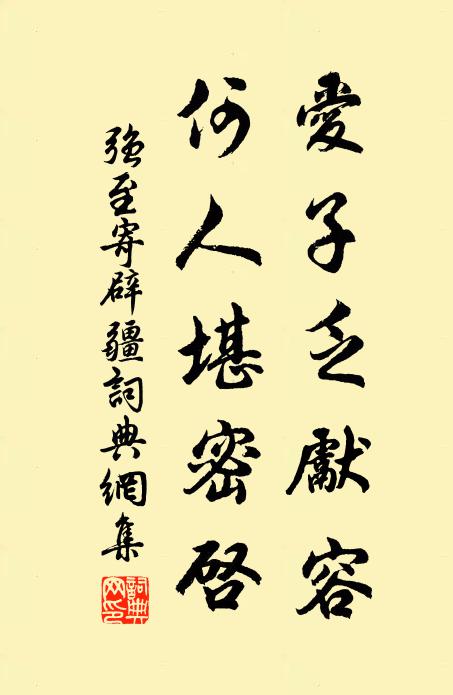 愛子乏獻容
何人堪密啓
強至寄辟疆詞典網集
詞典網印